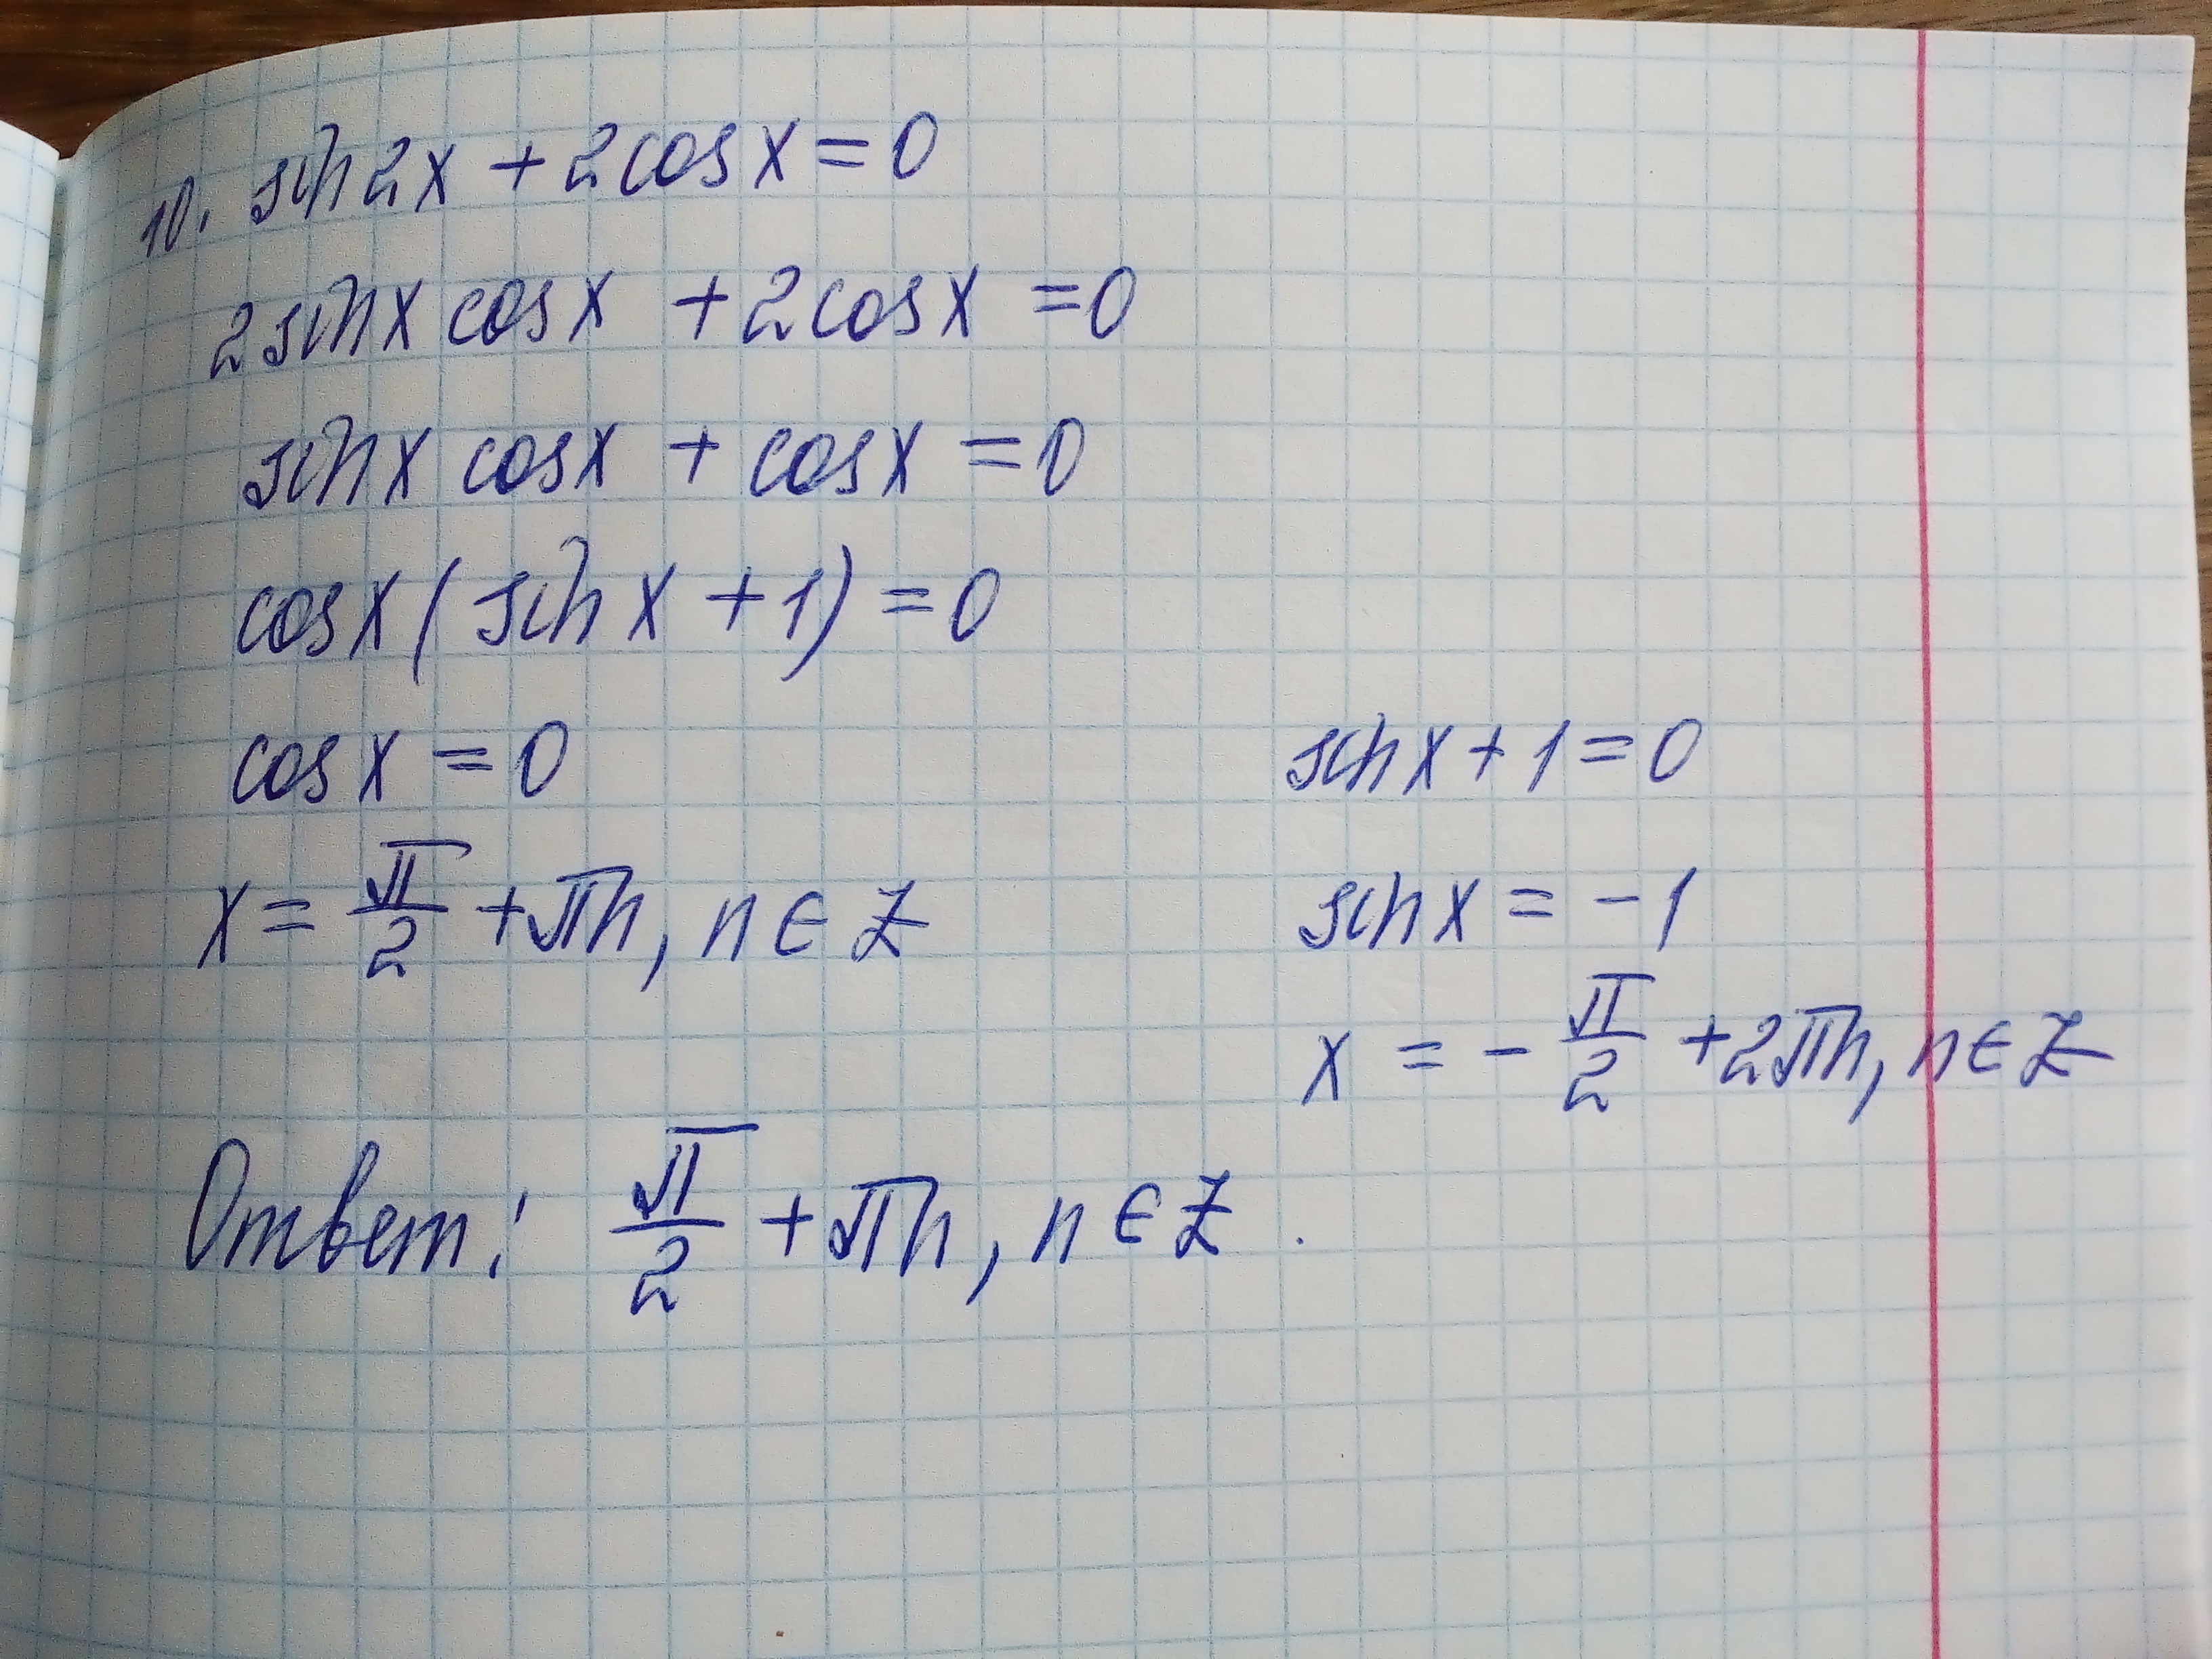 10. sin2x + 2cosx = 0
2sinx cosx + 2cosx = 0
sinx cosx + cosx = 0
cosx(sinx + 1) = 0
cosx = 0
x = π/2 + πn, n ∈ Z
sinx + 1 = 0
sinx = -1
x = -π/2 + 2πn, n ∈ Z
Ответ: π/2 + πn, n ∈ Z.